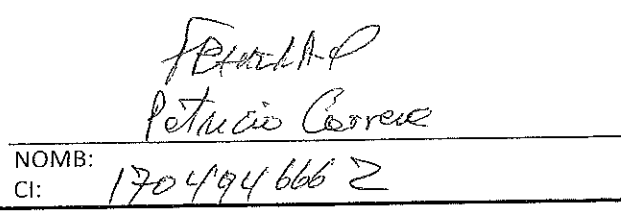 Patricio Carrera
NOMB:
CI: 1704946662